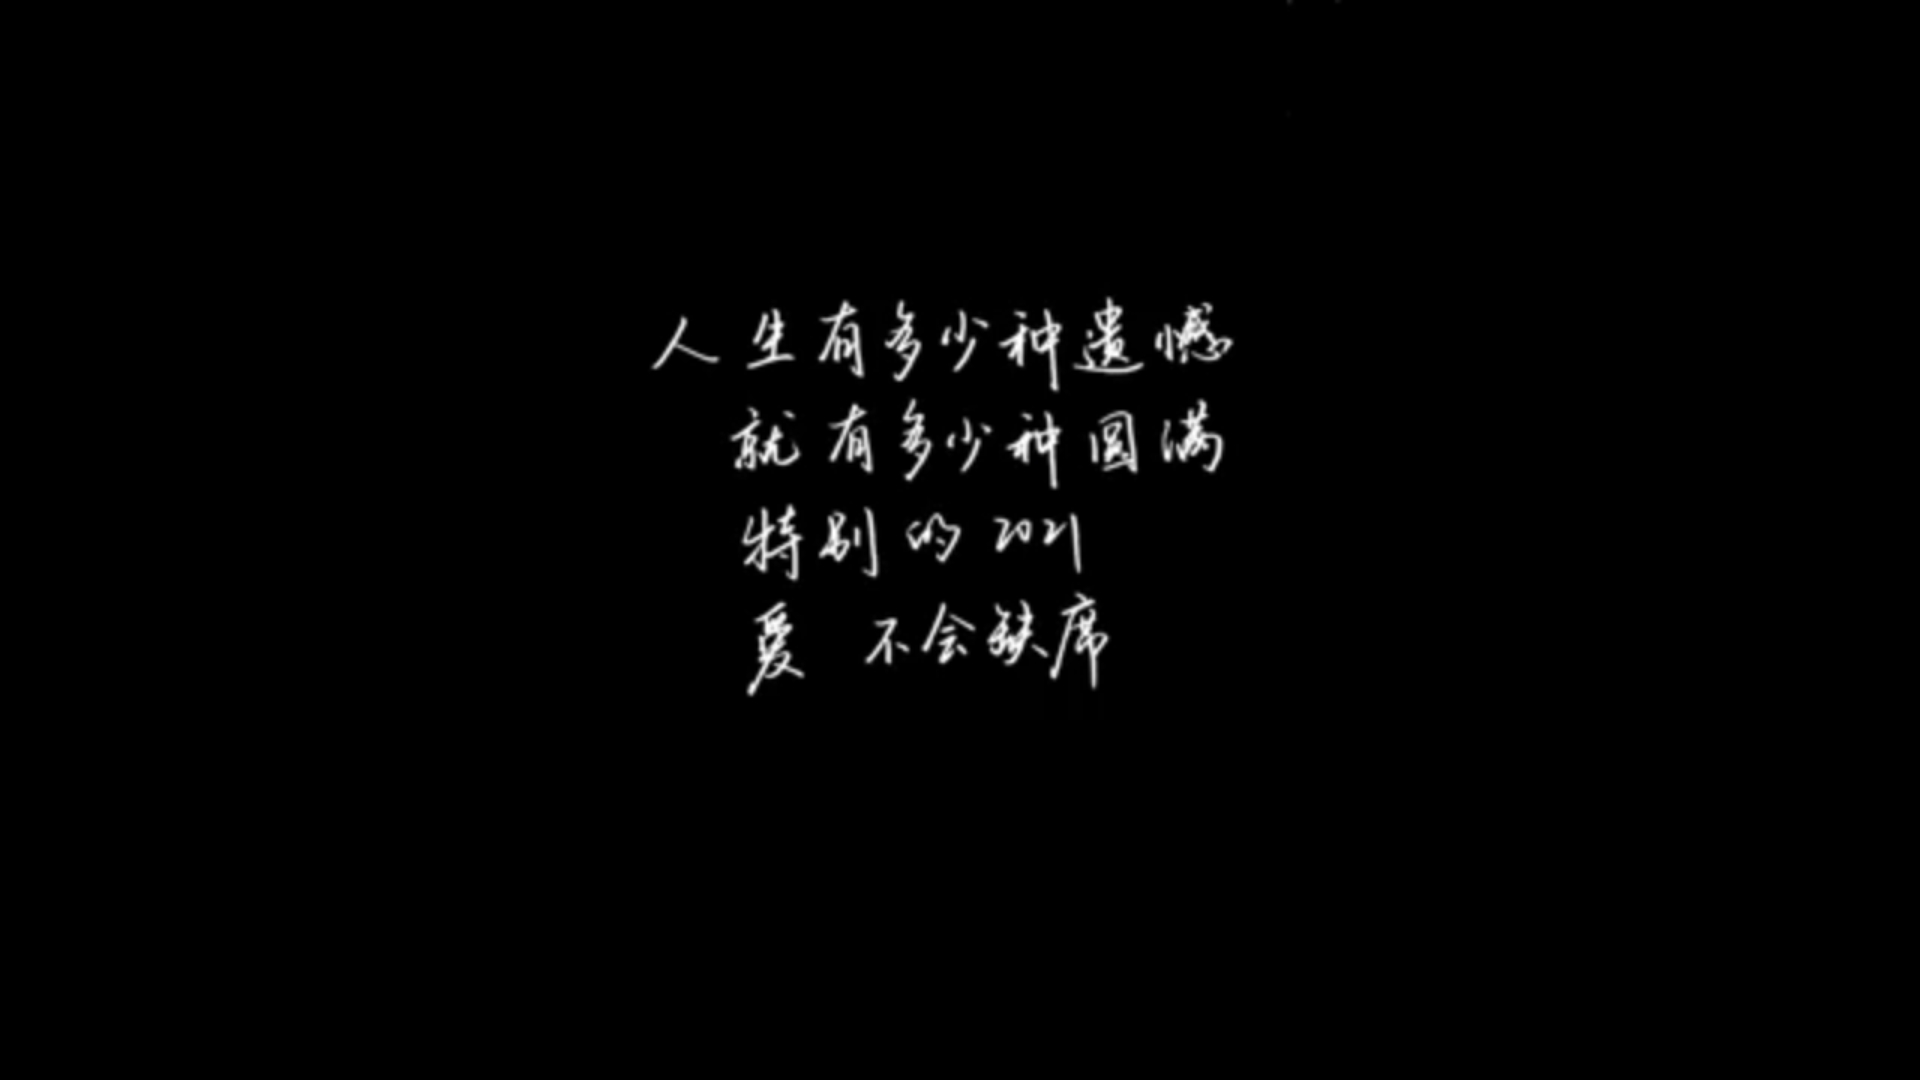 人生有多少种遗憾
就有多少种圆满
特别的2021
爱 不会缺席